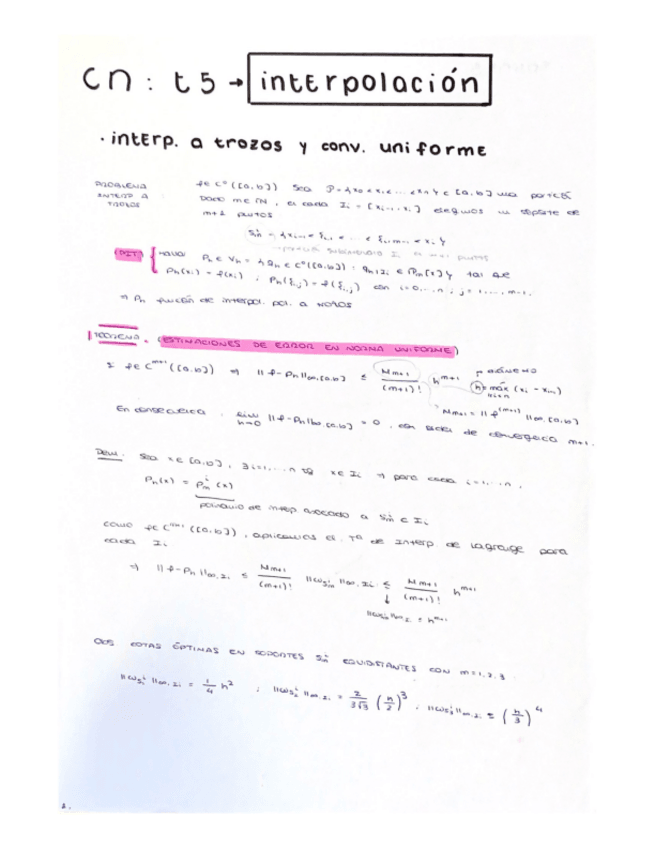 CN: T5 → interpolación
· interp. a trozos y conv. uniforme
PROBLEMA INTERP A TROZOS
f ∈ C⁰([a,b]) Sea P = {x₀ < x₁ < ... < xₙ} ∈ [a,b] una partición
Dado m ∈ ℕ, en cada Iᵢ = [xᵢ₋₁, xᵢ] elegimos un soporte de
m+2 puntos
(PIT) Hallar Pₕ ∈ Vₕ = {qₕ ∈ C⁰([a,b]) : qₕ|Iᵢ ∈ Pₘ[x]} tal que
Pₕ(xᵢ) = f(xᵢ) ; Pₕ(ξᵢ,ⱼ) = f(ξᵢ,ⱼ) con i=0,...,n ; j=1,...,m-1.
⇒ Pₕ función de interpol. pol. a trozos
TEOREMA. (ESTIMACIONES DE ERROR EN NORMA UNIFORME)
Σ f ∈ Cᵐ⁺¹([a,b]) ⇒ ||f-Pₕ||∞,[a,b] ≤ Mₘ₊₁/(m+1)! hᵐ⁺¹
Mₘ₊₁ = ||f⁽ᵐ⁺¹⁾||∞,[a,b]
En consecuencia, lim h→0 ||f-Pₕ||∞,[a,b] = 0, con orden de convergencia m+1.
Dem. Sea x ∈ [a,b], ∃ i=1,...,n tq x ∈ Iᵢ ⇒ para cada i=1,...,n,
Pₕ(x) = Pᵢₘ(x)
polinomio de interp. asociado a Sᵢₘ ⊂ Iᵢ
Como f ∈ Cᵐ⁺¹([a,b]), aplicamos el Tª de Interp. de Lagrange para
cada Iᵢ
⇒ ||f-Pₕ||∞,Iᵢ ≤ Mₘ₊₁/(m+1)! ||ωSᵢₘ||∞,Iᵢ ≤ Mₘ₊₁/(m+1)! hᵐ⁺¹
OBS COTAS ÓPTIMAS EN SOPORTES Sᵢₘ EQUIDISTANTES CON m=1,2,3.
||ωSᵢ₁||∞,Iᵢ = 1/4 h² ; ||ωSᵢ₂||∞,Iᵢ = 2/3√3 (h/2)³ ; ||ωSᵢ₃||∞,Iᵢ ≤ (h/3)⁴
1.